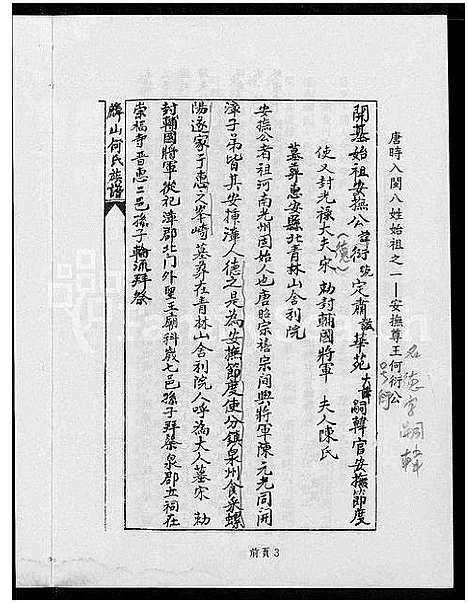 唐時入閩八姓始祖之一——安撫尊王何衍公
号衍
名德字嗣韓
開基始祖安撫公諱衍號定肅諡華苑大諱嗣韓官安撫節度
(德)
使又封光祿大夫宋 勅封輔國將軍 夫人陳氏
墓葬惠安縣北青林山舍利院
安撫公者祖河南光州固始人也唐昭宗禧宗間與將軍陳元光同開
漳子弟皆其安揷漳人德之是為安撫節度使分鎮泉州食采螺
陽遂家于惠之峯崎墓葬在青林山舍利院人呼為大人墓宋 勅
封輔國將軍從祀漳郡北門外聖王廟科歲七邑孫子拜謦泉郡立祠在
崇福寺晉惠二邑孫子輪流拜祭
麟山何氏族譜
前頁3